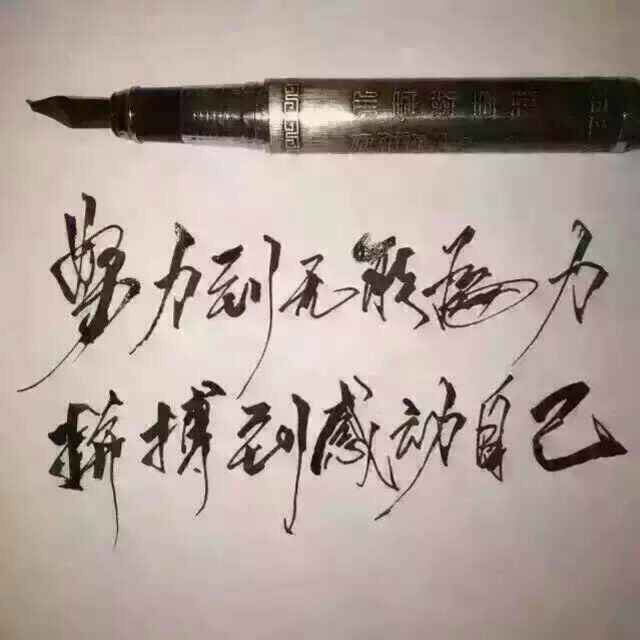 努力到无能為力
拼搏到感动自己